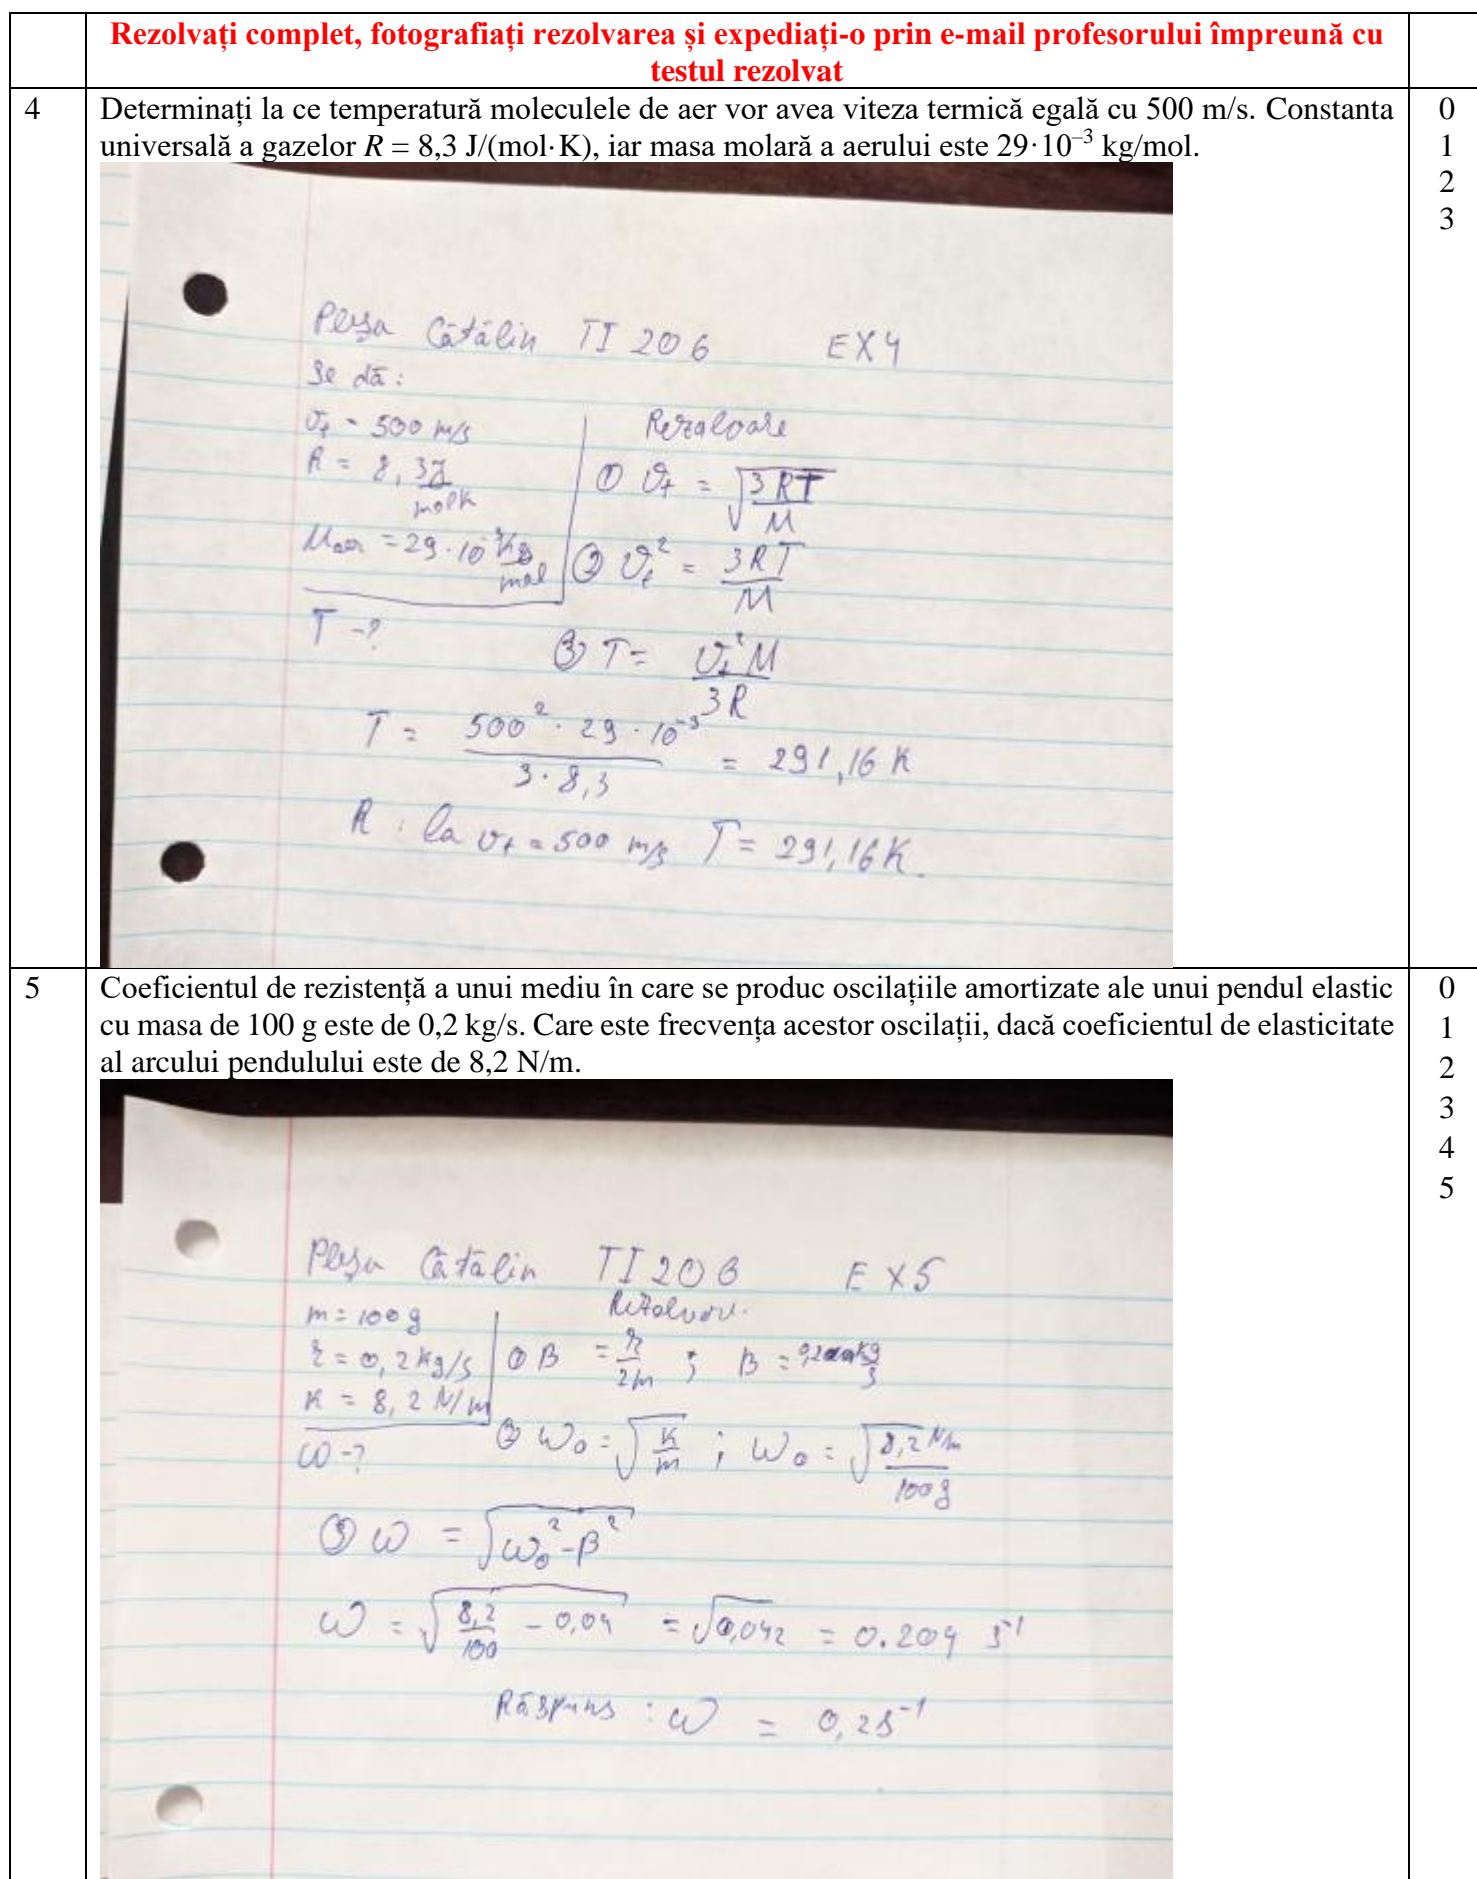 Rezolvați complet, fotografiați rezolvarea și expediați-o prin e-mail profesorului împreună cu
testul rezolvat
4
Determinați la ce temperatură moleculele de aer vor avea viteza termică egală cu 500 m/s. Constanta
universală a gazelor R = 8,3 J/(mol·K), iar masa molară a aerului este 29·10⁻³ kg/mol.
0
1
2
3
Pleșa Cătălin TI 206 EX4
Se dă:
υₜ = 500 m/s
R = 8,3 J/molK
M aer = 29·10⁻³ Kg/mol
T -?
Rezolvare
① υₜ = √(3RT/M)
② υₜ² = 3RT/M
③ T = υₜ²M/3R
T = 500²·29·10⁻³/3·8,3 = 291,16 K
R: la υₜ = 500 m/s T = 291,16 K.
5
Coeficientul de rezistență a unui mediu în care se produc oscilațiile amortizate ale unui pendul elastic
cu masa de 100 g este de 0,2 kg/s. Care este frecvența acestor oscilații, dacă coeficientul de elasticitate
al arcului pendulului este de 8,2 N/m.
0
1
2
3
4
5
Pleșa Cătălin TI 206 EX5
m = 100 g
r = 0,2 kg/s
K = 8,2 N/m
ω -?
① β = r/2m ; β =
② ω₀ = √(K/m) ; ω₀ = √(8,2 N/m/100g)
③ ω = √(ω₀² - β²)
ω = √(8,2/100 - 0,04) = √0,042 = 0.204 s⁻¹
Răspuns : ω = 0,2 s⁻¹